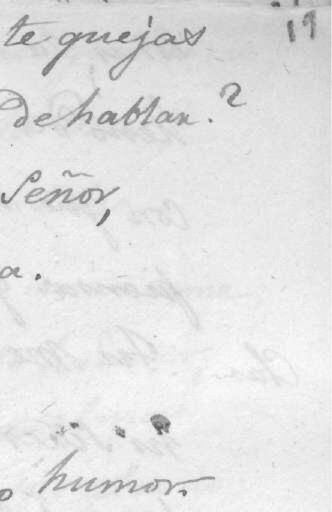 19
te quejas
de hablar.?
Señor,
a.
o humor.